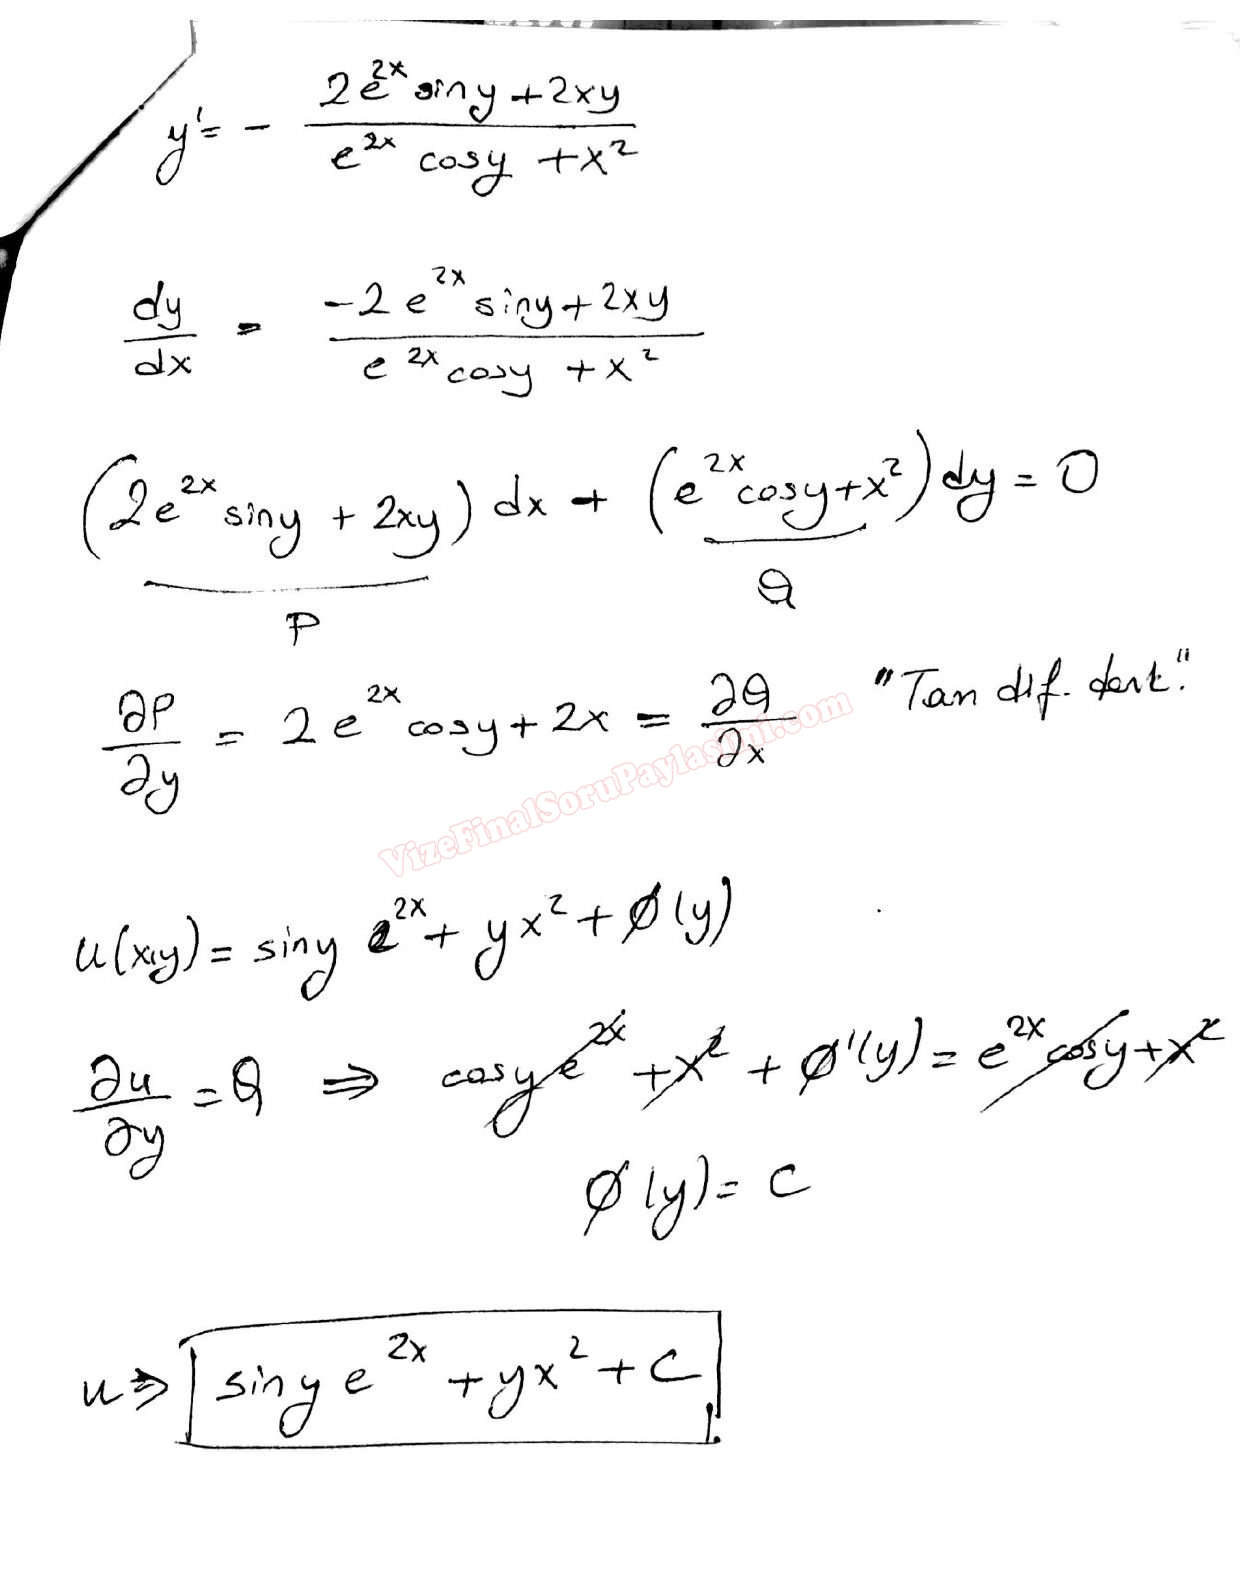 y' = - (2e^{2x} siny + 2xy) / (e^{2x} cosy + x^2)
dy/dx = (-2e^{2x} siny + 2xy) / (e^{2x} cosy + x^2)
(2e^{2x} siny + 2xy) dx + (e^{2x} cosy + x^2) dy = 0
P Q
∂P/∂y = 2e^{2x} cosy + 2x = ∂Q/∂x "Tan dif. denk."
VizeFinalSoruPaylasimi.com
u(x,y) = siny e^{2x} + yx^2 + ø(y)
∂u/∂y = Q ⇒ cosy e^{2x} + x^2 + ø'(y) = e^{2x} cosy + x^2
ø(y) = c
u ⇒ siny e^{2x} + yx^2 + c